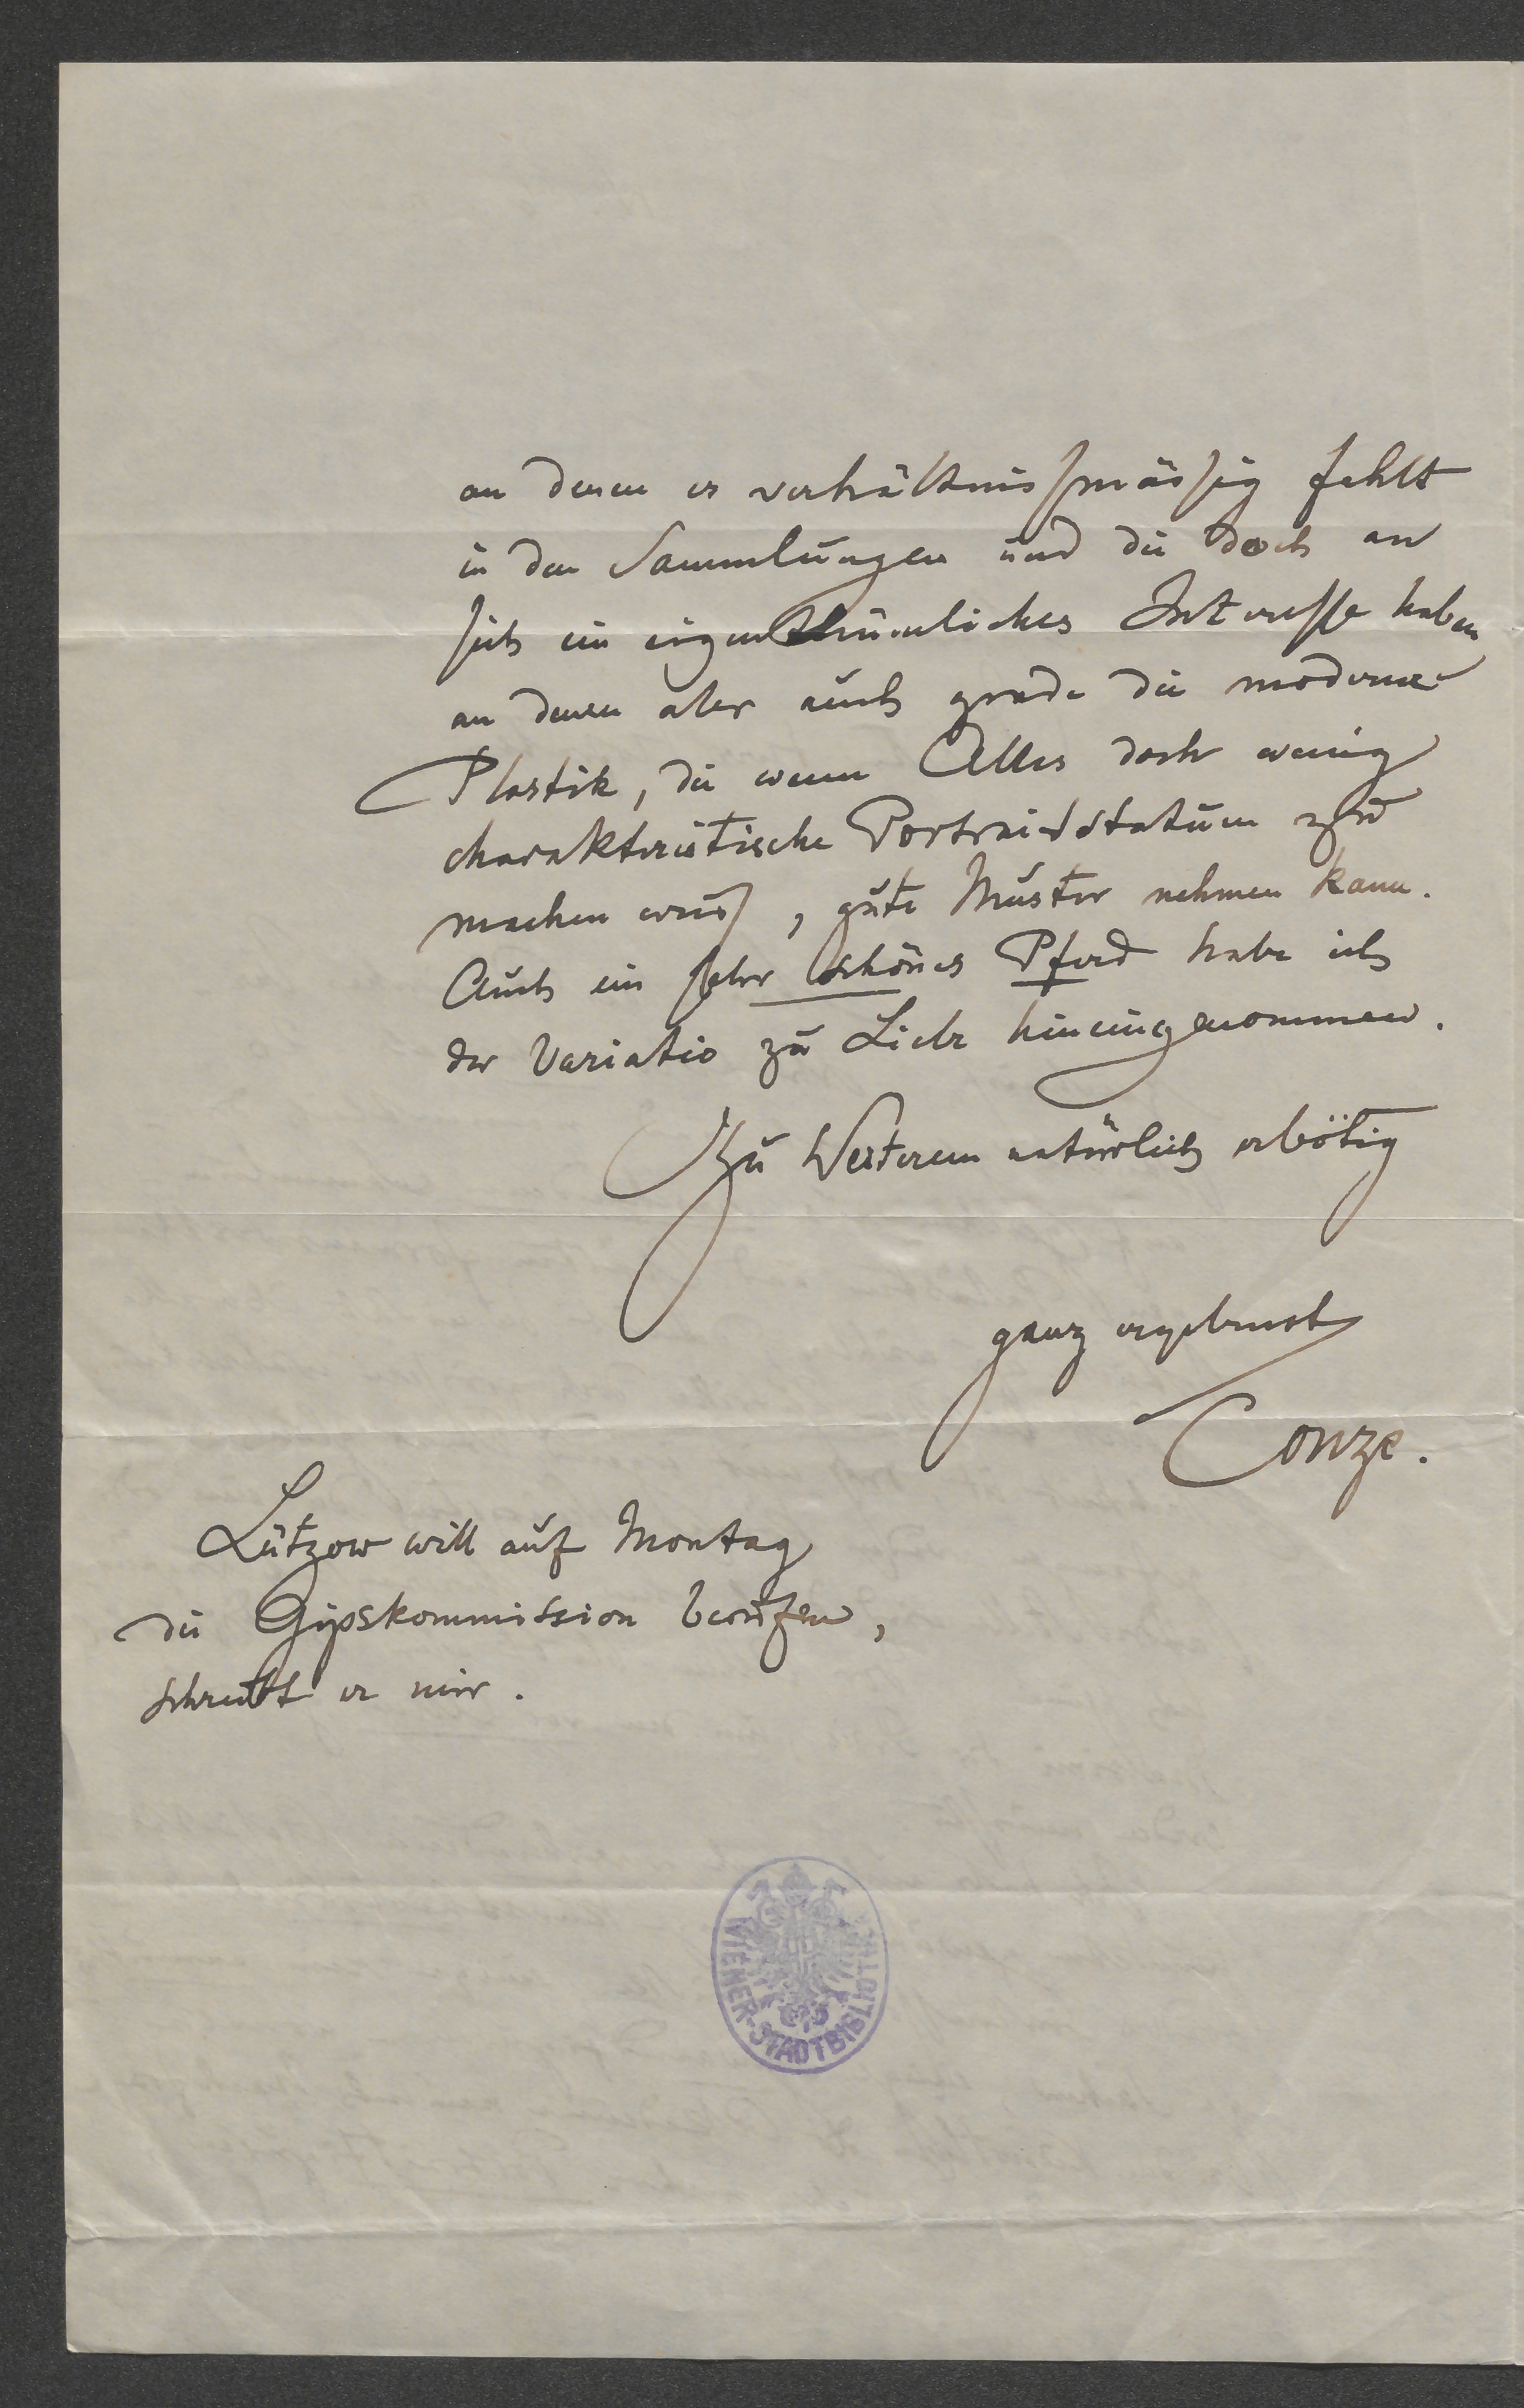 an denen es verhältnissmässig fehlt
in den Sammlungen und die doch an
sich ein eigenthümliches Interesse haben
an denen aber auch grade die moderne
Plastik, die wenn Alles doch wenig
charakteristische Portraitstatuen zu
machen weiß, gute Muster nehmen kann.
Auch ein sehr schönes Pferd habe ich
der Variatio zu Liebe hineingenommen.
Zu Weiterem natürlich erbötig
ganz ergebenst
Conze.
Lützow will auf Montag
die Gipskommission berufen,
schreibt er mir.
WIENER-STADTBIBLIOTHEK